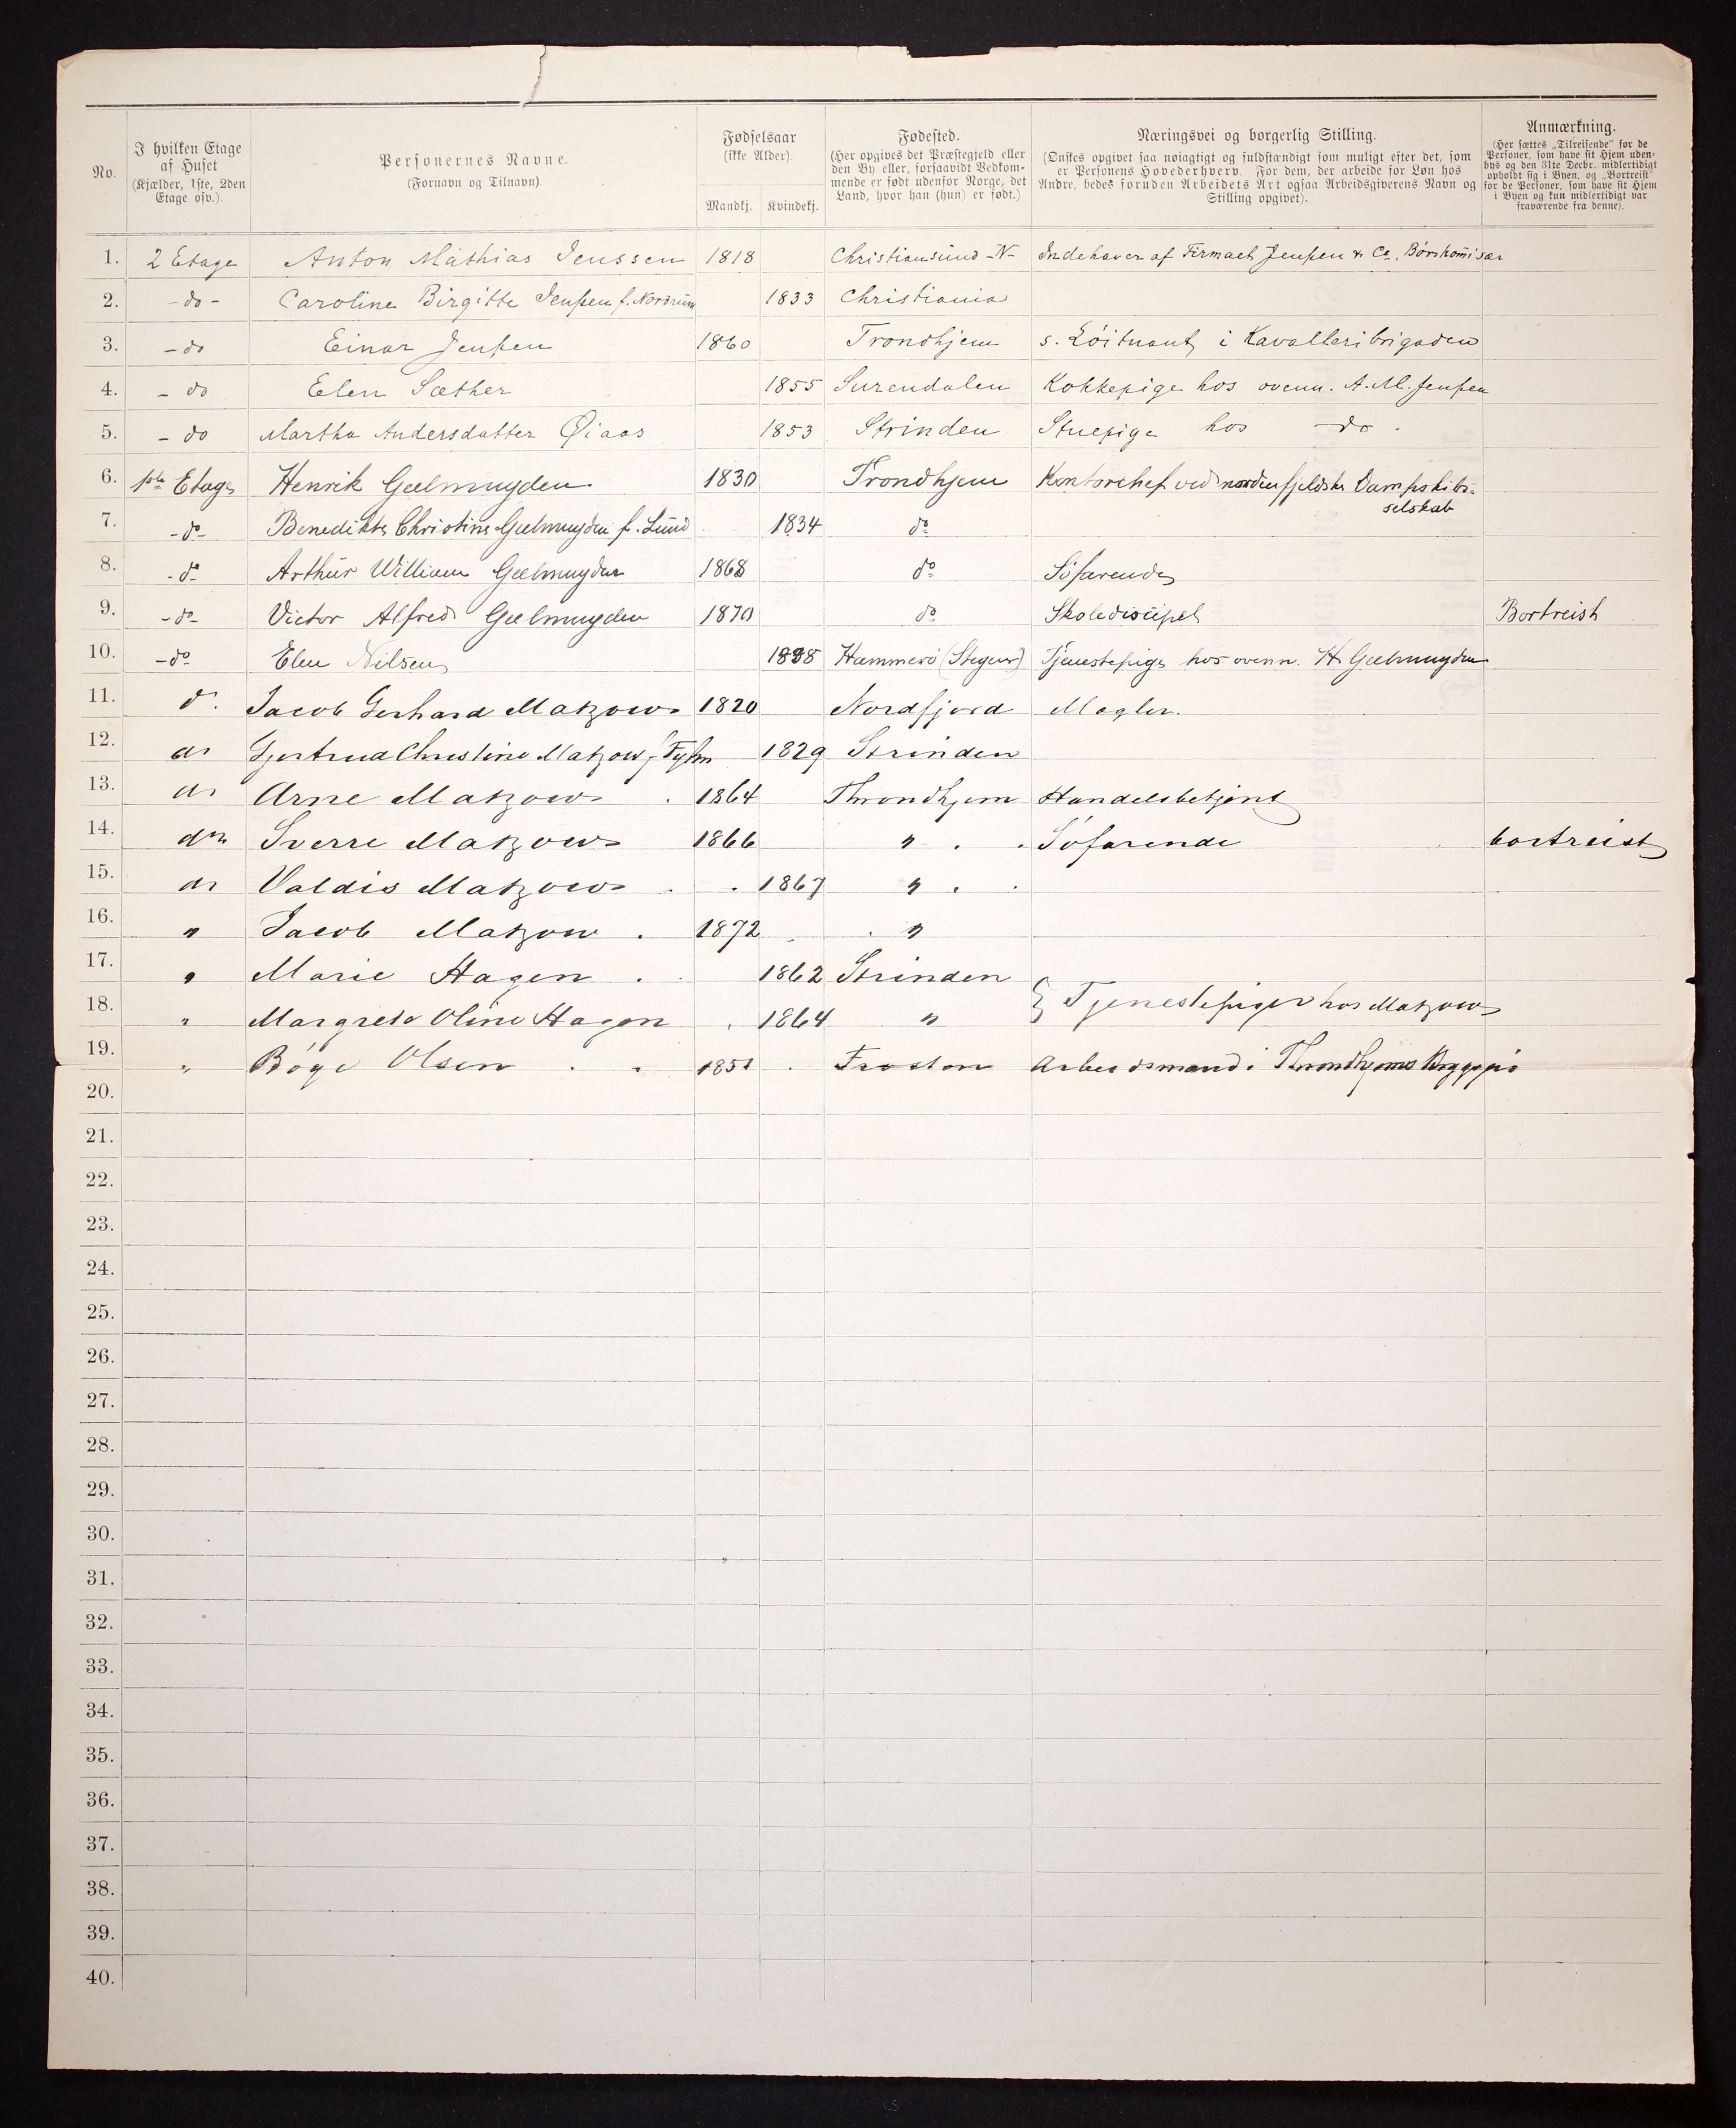 No.
I hvilken Etage
af Huset
(Kjælder, 1ste, 2den
Etage osv.).
Personernes Navne.
(Fornavn og Tilnavn).
Fødselsaar
(ikke Alder).
Mandkj. Kvindekj.
Fødested.
(Her opgives det Præstegjeld eller
den By eller, forsaavidt Vedkom-
mende er født udenfor Norge, det
Land, hvor han (hun) er født.)
Næringsvei og borgerlig Stilling.
(Ønskes opgivet saa nøiagtigt og fuldstændigt som muligt efter det, som
er Personens Hovederhverv. For dem, der arbeide for Løn hos
Andre, bedes foruden Arbeidets Art ogsaa Arbeidsgiverens Navn og
Stilling opgivet).
Anmærkning.
(Her sættes „Tilreisende" for de
Personer, som have sit Hjem uden-
bys og den 31te Decbr. midlertidigt
opholdt sig i Byen, og „Bortreist"
for de Personer, som have sit Hjem
i Byen og kun midlertidigt var
fraværende fra denne).
1. 2 Etage Anton Mathias Jenssen 1818 Christiansund -N- Indehaver af Firmaet Jenssen & Co, Børskomisær
2. -do- Caroline Birgitte Jenssen f. Nordrum 1833 Christiania
3. -do Einar Jenssen 1860 Trondhjem s. Löitnant i Kavalleribrigaden
4. - do Elen Sæther 1855 Surendalen Kokkepige hos ovenn. A. M. Jenssen
5. - do Martha Andersdatter Øiaas 1853 Strinden Stuepige hos -do-
6. 1ste Etage Henrik Geelmuyden 1830 Trondhjem Kontorchef ved nordenfjeldske Dampskibs-
selskab
7. -do- Benedikte Christine Geelmuyden f. Lund 1834 do
8. -do- Arthur William Geelmuyden 1868 do Söfarende
9. -do- Victor Alfred Geelmuyden 1870 do Skolediscipel Bortreist
10. -do Elen Nilsen Hammerö (Stegen) Tjenestepige hos ovenn. H. Geelmuyden
11. do Jacob Gerhard Matzow 1820 Nordfjord Mægler.
12. do Gjertrud Christine Matzow f. 1829 Strinden
13. do Arne Matzow 1864 Throndhjem Handelsbetjent
14. do Sverre Matzow 1866 " Söfarende bortreist
15. do Valdis Matzow 1867 "
16. " Jacob Matzow 1872 "
17. " Marie Hagen 1862 Strinden
18. " Margrete Oline Hagen 1864 " } Tjenestepiger hos Matzow
19. " Böye Olsen 1851 Frosten Arbeidsmand i Throndhjems
20.
21.
22.
23.
24.
25.
26.
27.
28.
29.
30.
31.
32.
33.
34.
35.
36.
37.
38.
39.
40.